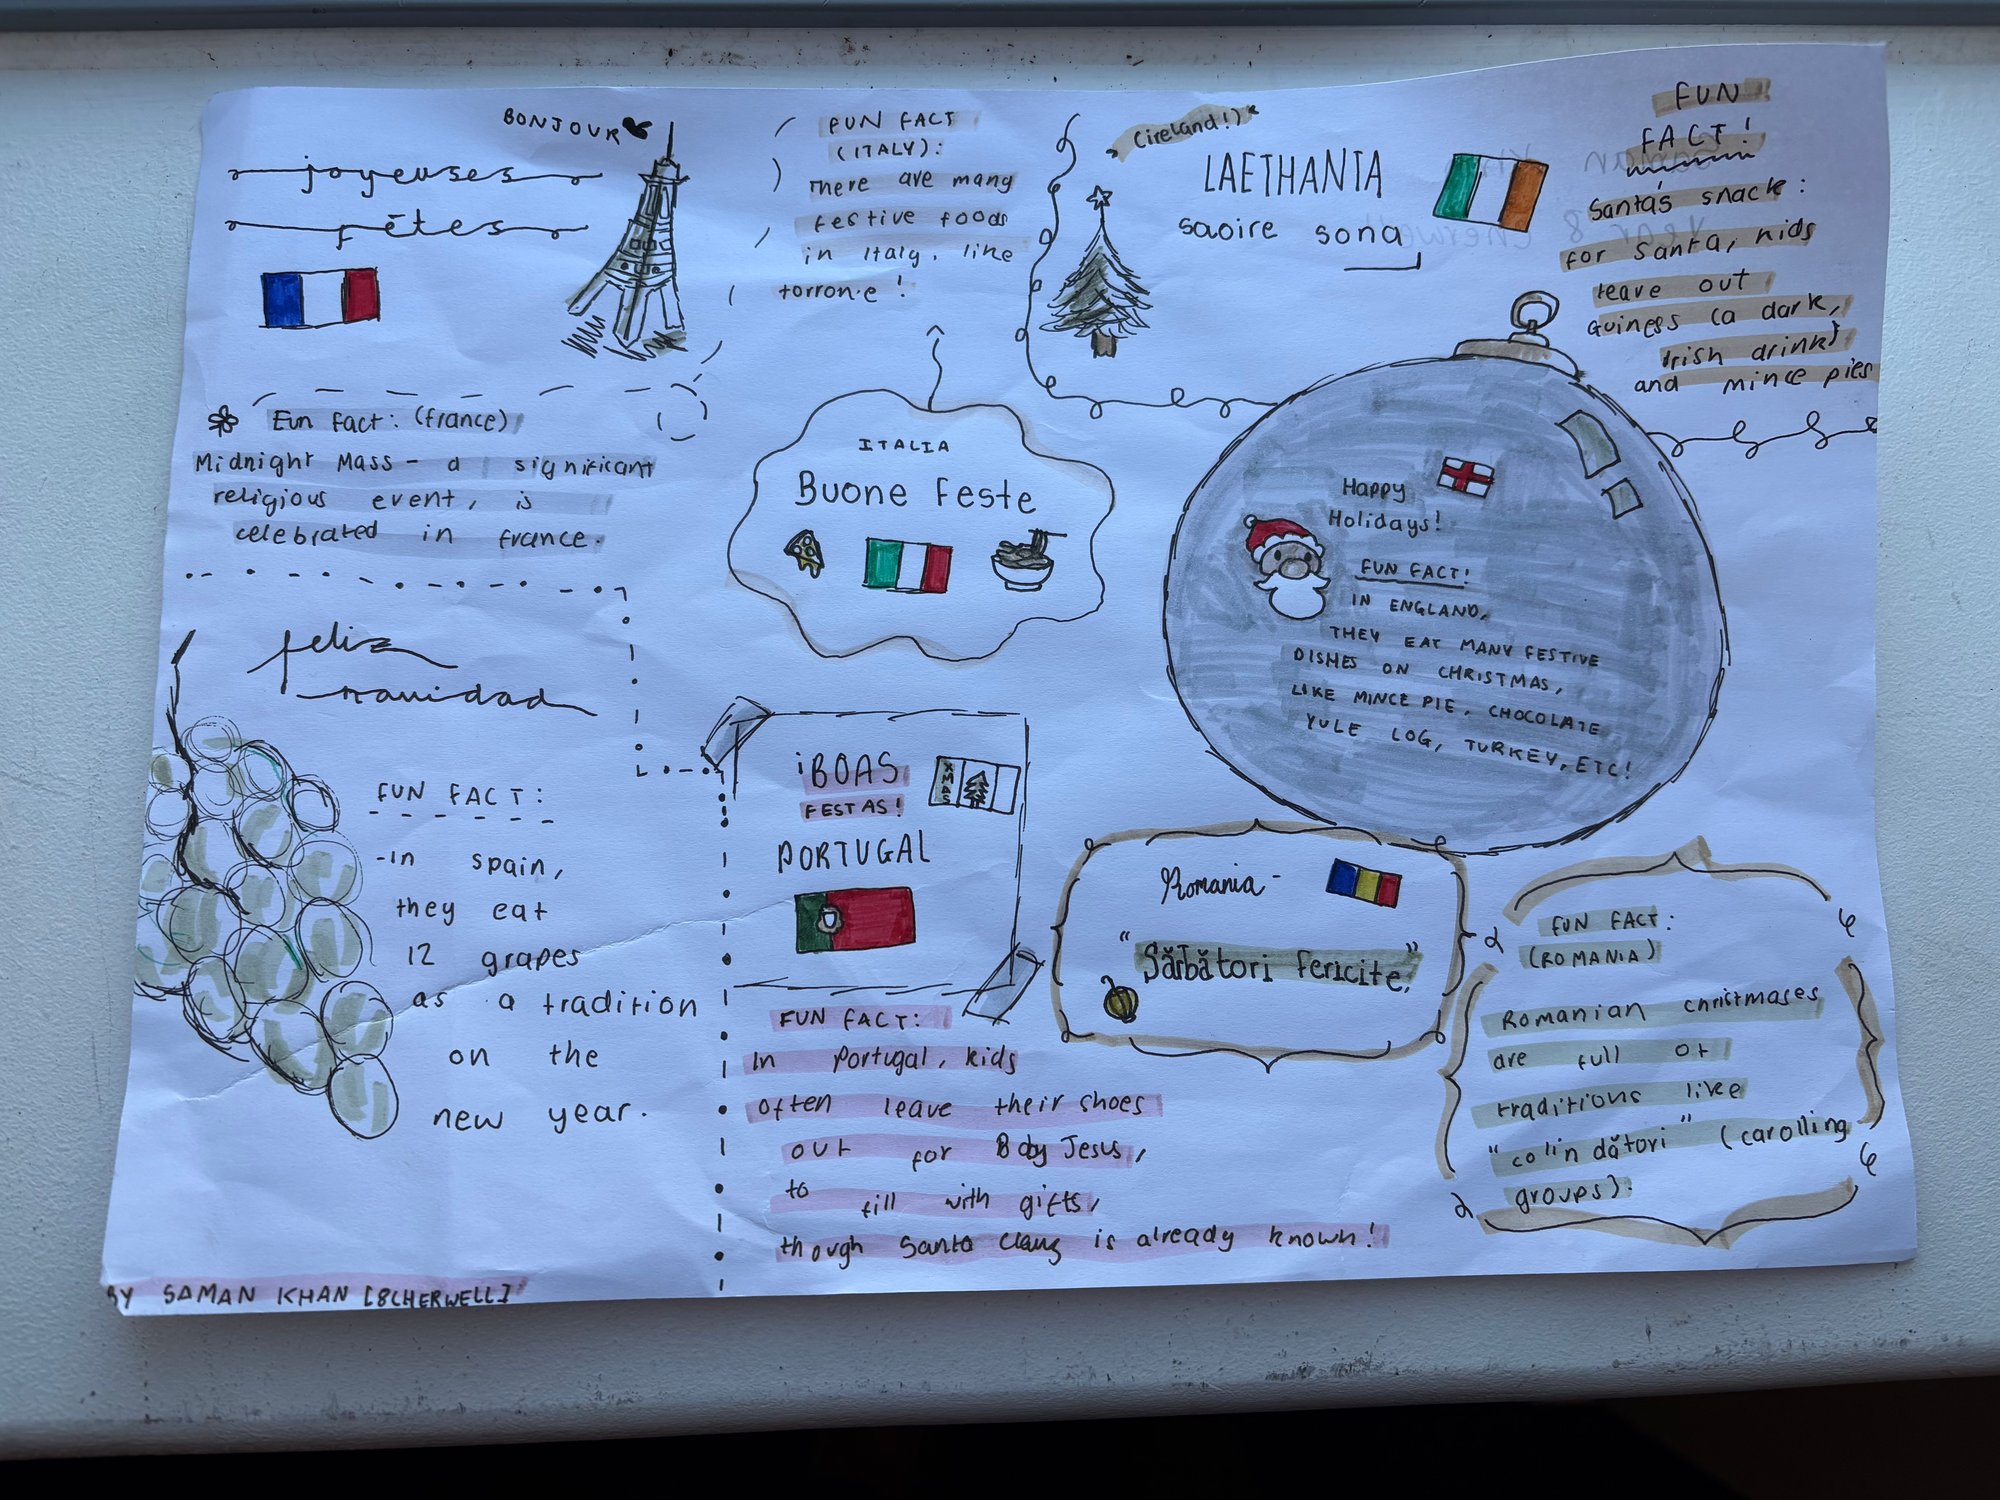 BONJOUR
joyeuses
fêtes
Fun fact: (france)
Midnight Mass - a significant
religious event, is
celebrated in france.
FUN FACT
(ITALY):
There are many
festive foods
in Italy, like
torrone!
ITALIA
Buone Feste
(ireland!)
LAETHANTA
saoire sona
FUN
FACT!
Santa's snack:
for Santa, kids
leave out
Guiness (a dark,
Irish drink)
and mince pies
Happy
Holidays!
FUN FACT!
IN ENGLAND,
THEY EAT MANY FESTIVE
DISHES ON CHRISTMAS,
LIKE MINCE PIE, CHOCOLATE
YULE LOG, TURKEY, ETC!
feliz
navidad
FUN FACT:
-in spain,
they eat
12 grapes
as a tradition
on the
new year.
¡BOAS
FESTAS!
XMAS
PORTUGAL
FUN FACT:
In Portugal, kids
often leave their shoes
out for Baby Jesus,
to fill with gifts,
though Santa Claus is already known!
Romania-
"Sărbători fericite."
FUN FACT:
(ROMANIA)
Romanian christmases
are full of
traditions like
"colindători" (carolling
groups).
BY SAMAN KHAN [8CHERWELL]